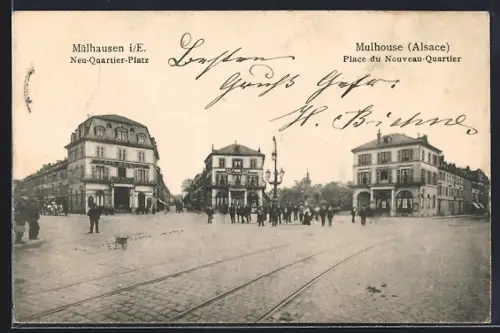 Mülhausen i/E.
Neu-Quartier-Platz
Mulhouse (Alsace)
Place du Nouveau-Quartier
Besten
Gruß
H.